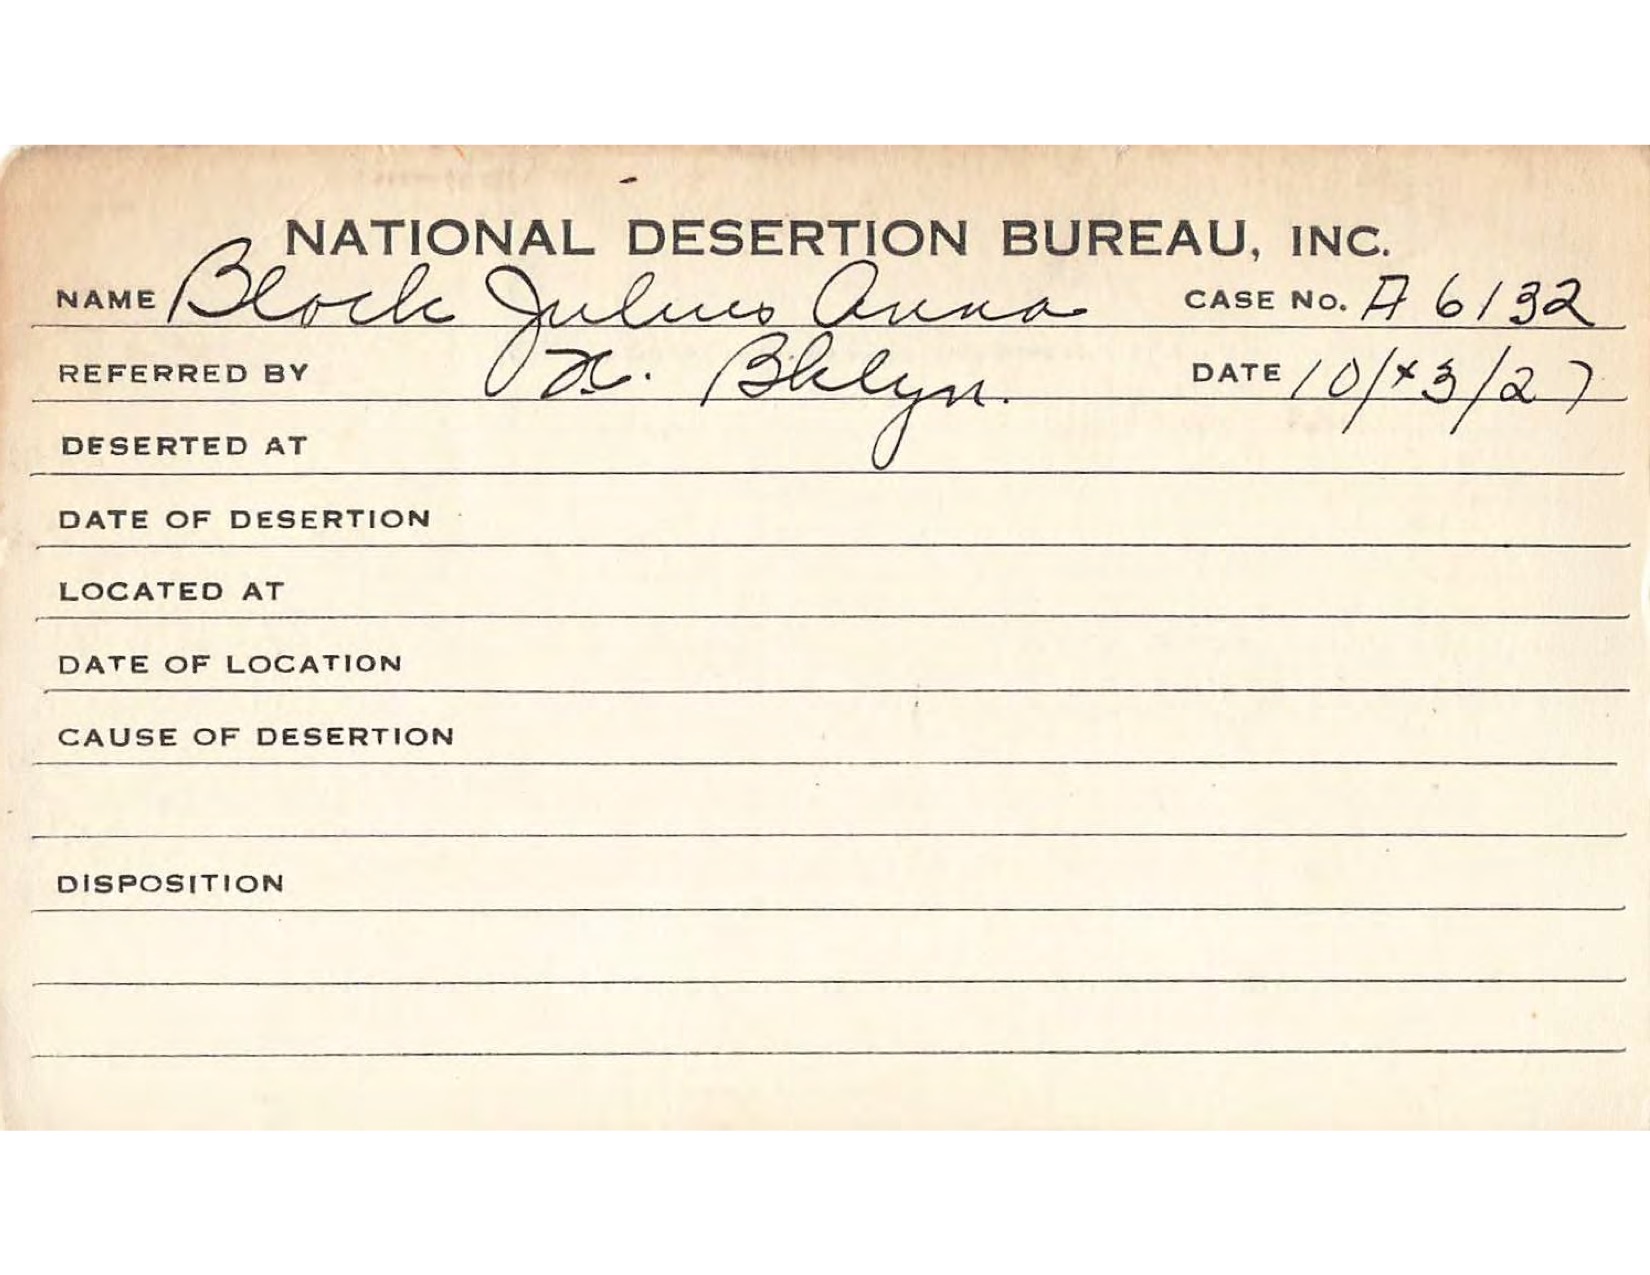 NATIONAL DESERTION BUREAU, INC.
NAME Block Julius Anna CASE NO. A 6132
REFERRED BY X. Bklyn. DATE 10/ 3/27
DESERTED AT
DATE OF DESERTION
LOCATED AT
DATE OF LOCATION
CAUSE OF DESERTION
DISPOSITION